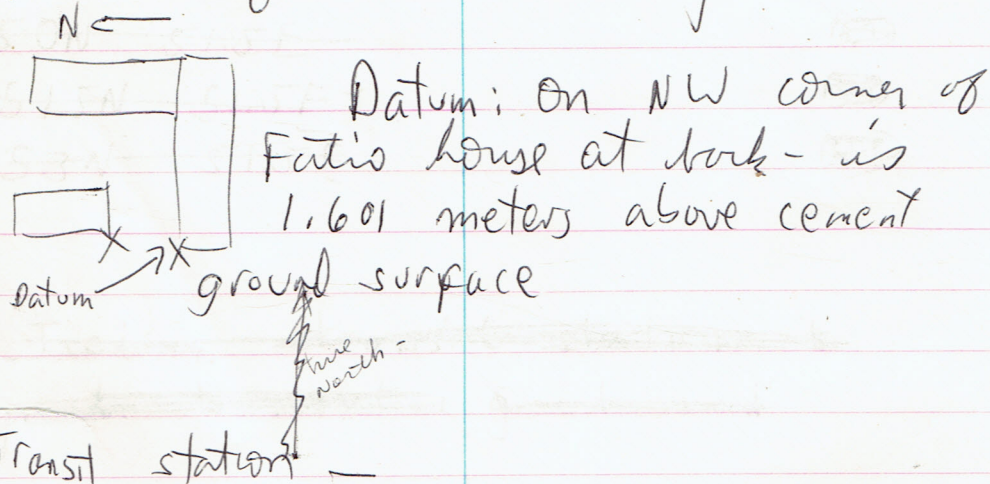 N
Datum: on NW corner of
Fatio house at back - is
1.601 meters above cement
ground surface
Datum
true
North -
Transit station